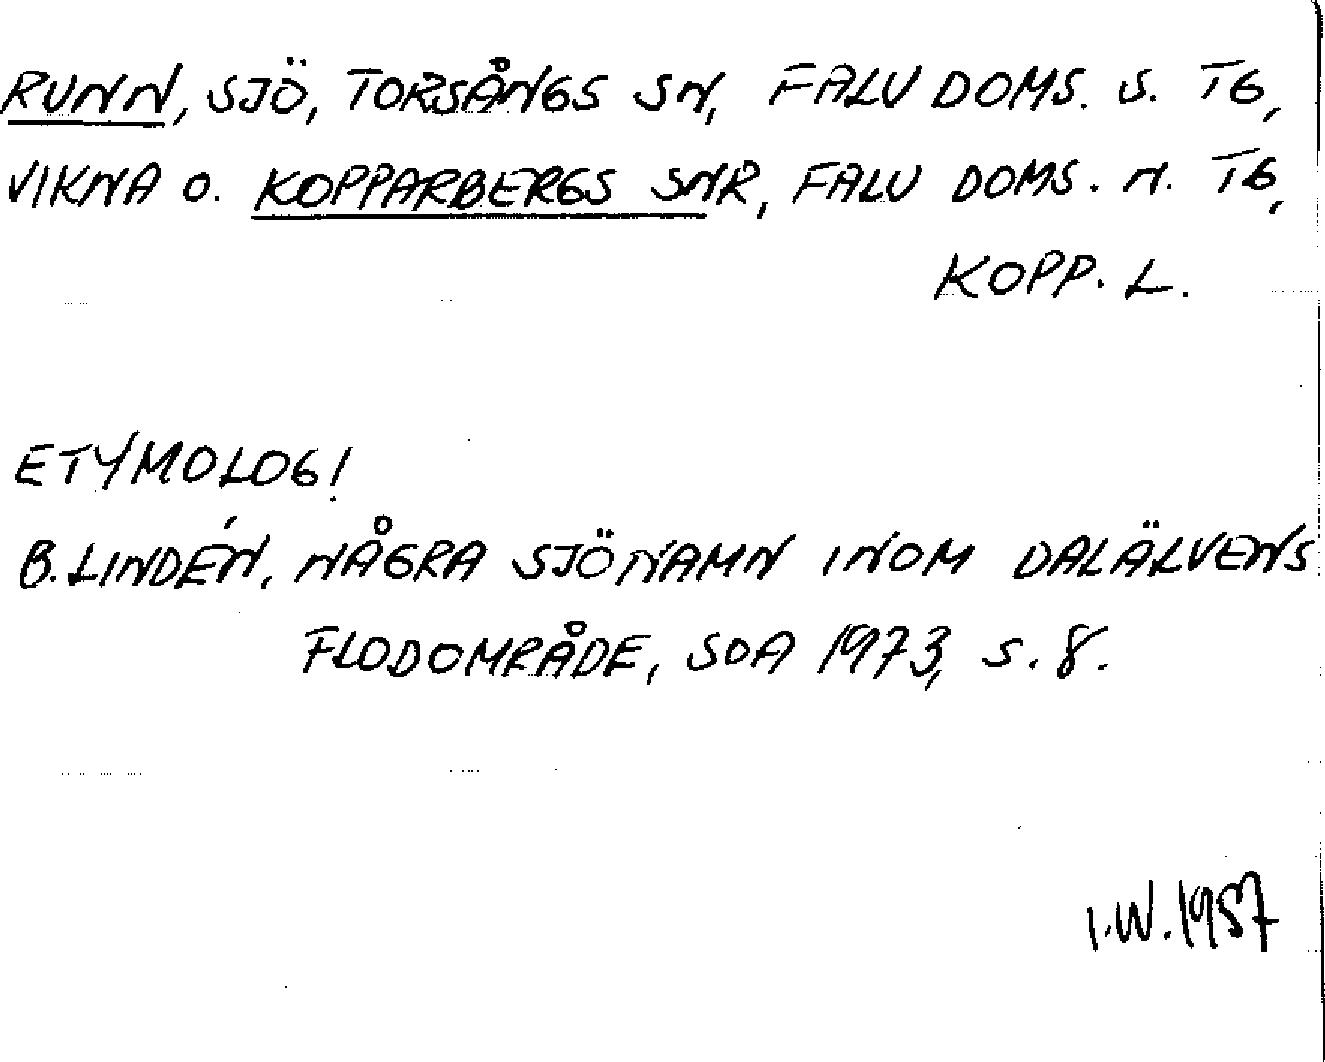 RUNN, SJÖ, TORSÅNGS SN, FALU DOMS. S. TG,
VIKNA O. KOPPARBERGS SNR, FALU DOMS. N. TG,
KOPP. L.
ETYMOLOGI
B. LINDÉN, NÅGRA SJÖNAMN INOM DALÄLVENS
FLODOMRÅDE, SOA 1973, S. 8.
I.W. 1987